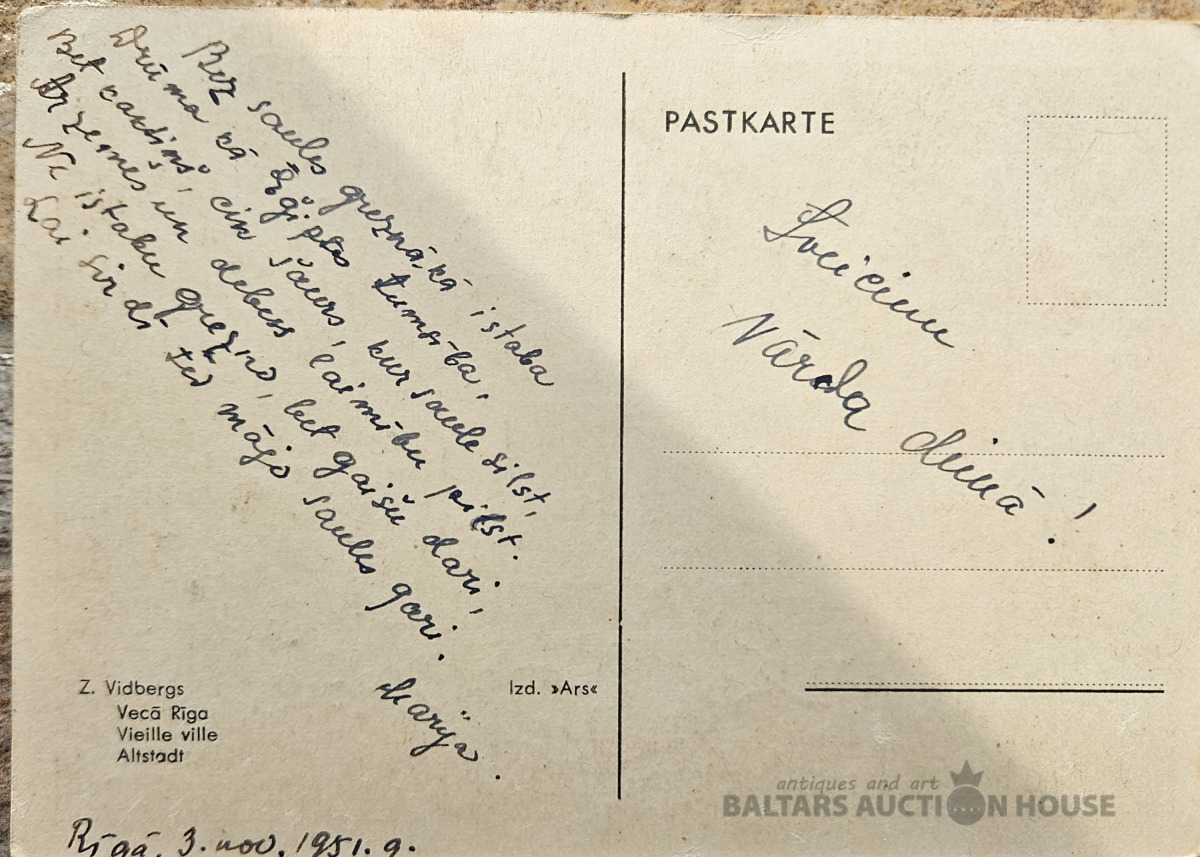 Bez saules greznākā istaba
Drūma kā Ēģiptes tumsība,
Bet kaktiņš, cik šaurs, kur saule silst,
Ar zemes un debess laimību pilst.
Ne istabu grezno, bet gaišu dari,
Lai sirdī tev mājo saules gari.
Marija.
Z. Vidbergs
Vecā Rīga
Vieille ville
Altstadt
Izd. »Ars«
Rīgā, 3. nov. 1951. g.
PASTKARTE
Sveicienu
Vārda dienā!
antiques and art
BALTARS AUCTION HOUSE